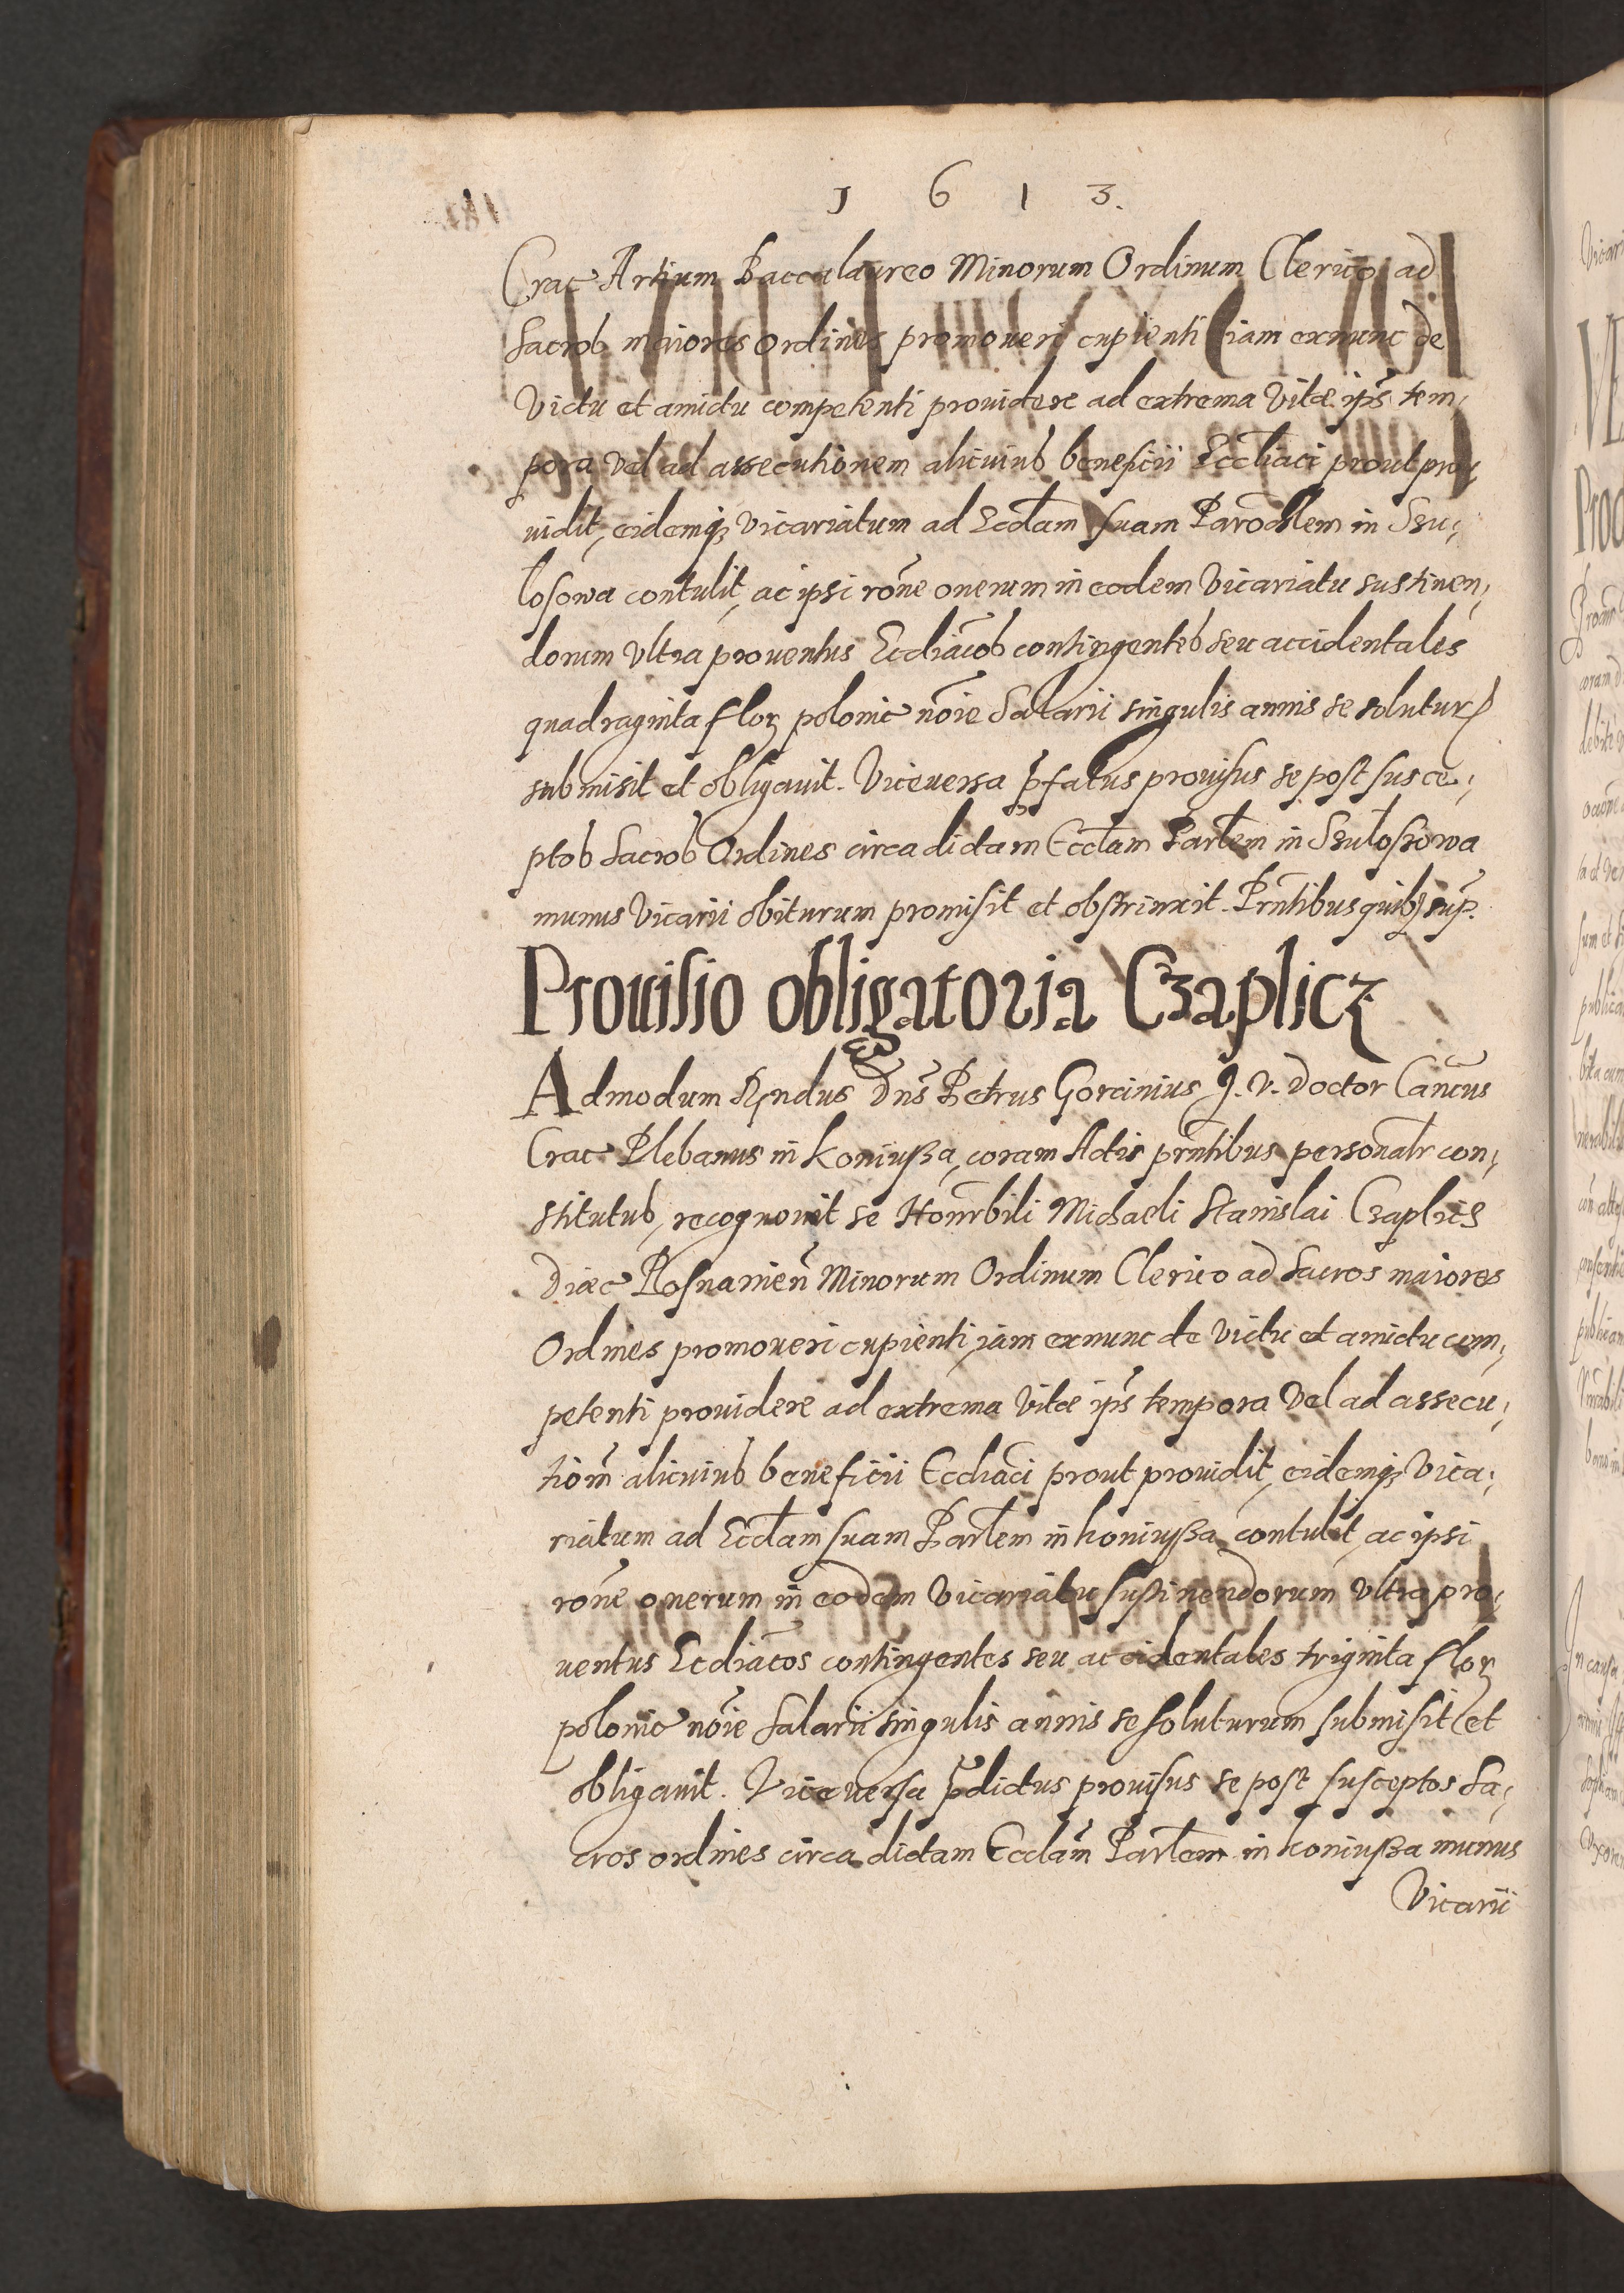 1 6 1 3.
Crac Artium Baccalaureo Minorum Ordinum Clerico ad
sacros maiores ordines promoueri cupienti iam exnunc de
victu et amictu competenti prouidere ad extrema vitæ ips̃ tem,
pora vel ad assecutionem alicuius beneficii Eccl̃iaci prout pro,
uidit, eidemq; vicariatum ad Eccl̃am suam Paroch̃lem in Ssu,
łosowa contulit, ac ipsi rõne onerum in eodem vicariatu sustinen,
dorum vltra prouentus Eccl̃iac̃os contingentes seu accidentales
quadraginta flor̃ polonic nõie salarii singulis annis se soluturũ
submisit et obligauit. Viceuersa p̃fatus prouisus se post susce,
ptos sacros Ordines circa dictam Eccl̃am Par̃lem in Szułoszowa
munus vicarii obiturum promisit et obstrinxit. Pr̃ntibus quib; sup̃.
Prouisio obligatoria Czaplicz
Admodum Rṽndus Dñs Petrus Gorcinius J. V. Doctor Cañcus
Crac Plebanus in Koniußa, coram Actis pr̃ntibus personalr̃ con,
stitutus, recognouit se Honor̃bili Michaeli Stanislai Czaplicz
Diæc Posnanien̄ Minorum Ordinum Clerico ad sacros maiores
Ordines promoueri cupienti, iam exnunc de victu et amictu com,
petenti prouidere ad extrema vitæ ips̃ tempora vel ad assecu,
tiom̃ alicuius beneficii Eccl̃iaci prout prouidit, eidemq; vica,
riatum ad Eccl̃am suam Par̃lem in Koniußa contulit, ac ipsi
rõne onerum in eodem vicariatu sustinendorum vltra pro,
uentus Eccl̃iac̃os contingentes seu accidentales triginta flor̃
polonic nõie salarii singulis annis se soluturum submisit et
obligauit. Viceuersa p̃dictus prouisus se post susceptos sa,
cros ordines circa dictam Eccl̃am Par̃lem in Koniußa munus
Vicarii